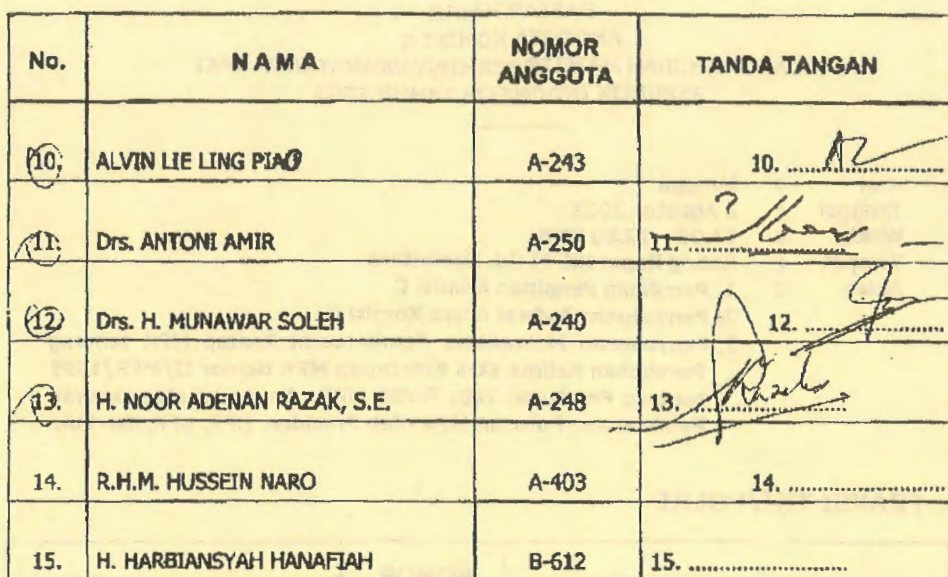 No. NAMA NOMOR ANGGOTA TANDA TANGAN
10. ALVIN LIE LING PIAO A-243 10. ....................
11. Drs. ANTONI AMIR A-250 11. ....................
12. Drs. H. MUNAWAR SOLEH A-240 12. ....................
13. H. NOOR ADENAN RAZAK, S.E. A-248 13. ....................
14. R.H.M. HUSSEIN NARO A-403 14. ....................
15. H. HARBIANSYAH HANAFIAH B-612 15. ....................